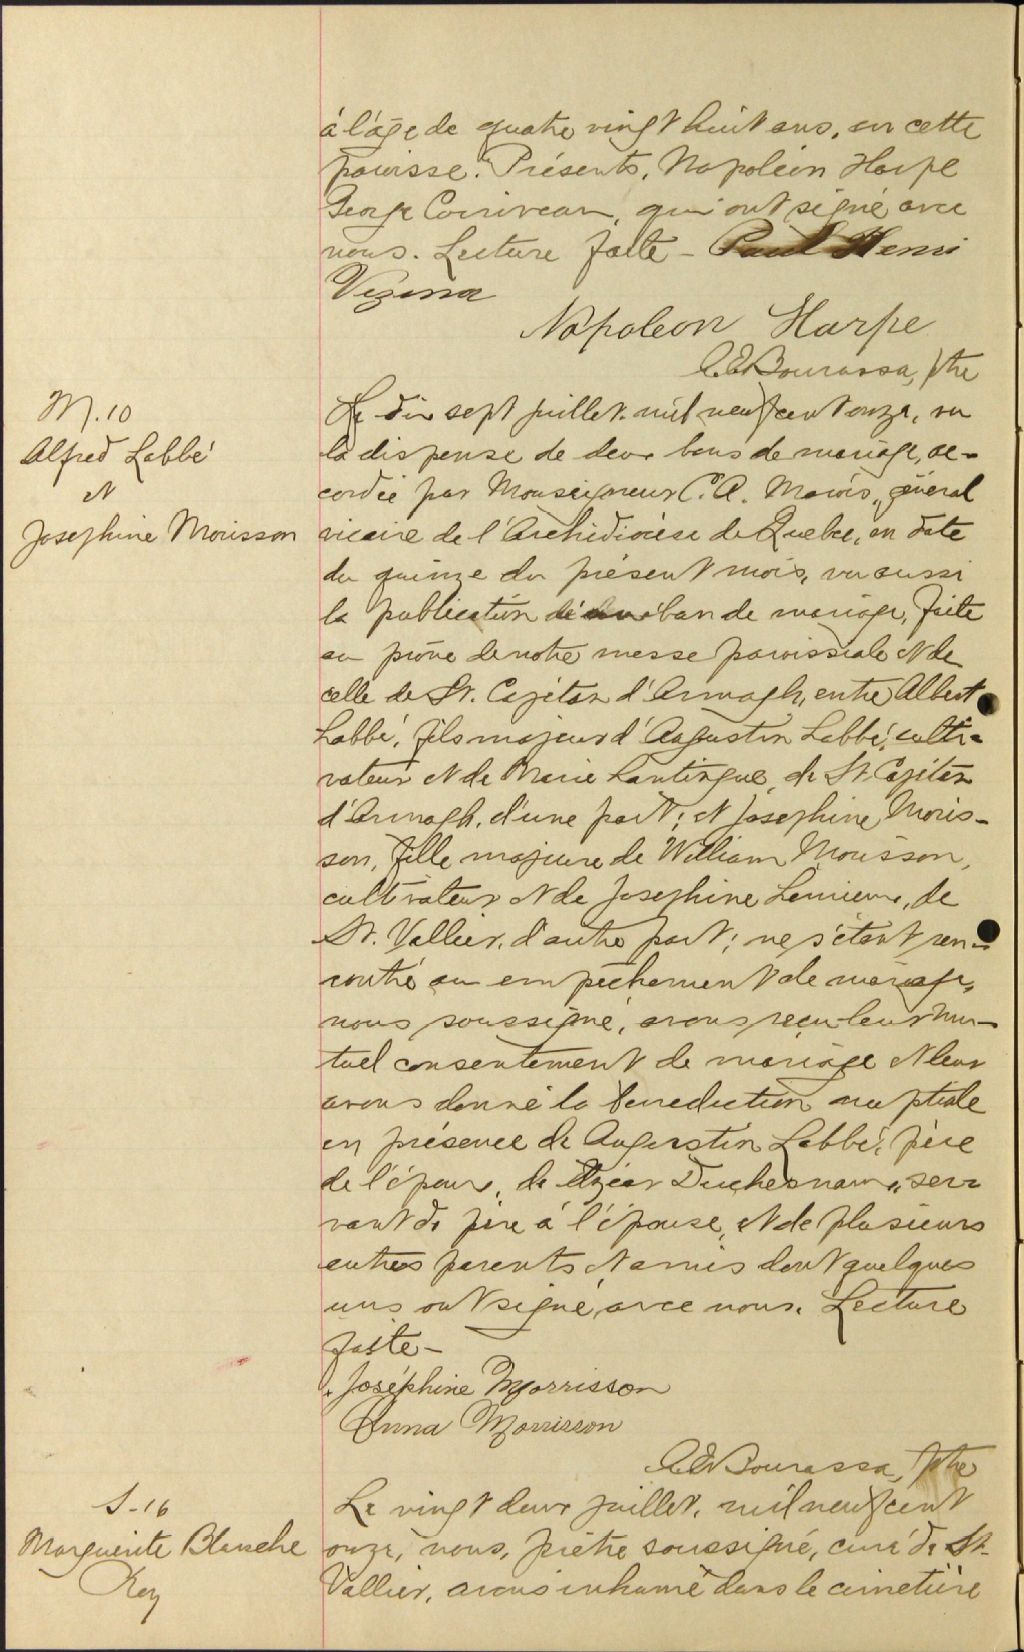 à l'âge de quatre vingt huit ans, en cette
paroisse. Présents, Napoléon Harpe
George Corriveau, qui ont signé avec
nous. Lecture faite - Paul Henri
Vezina
Napoleon Harpe
Bourassa, ptre
M. 10
Alfred Labbé
et
Josephine Morisson
Le dix sept juillet mil neuf cent onze, vu
la dispense de deux bans de mariage, ac-
cordée par Monseigneur C. A. Marois, général
vicaire de l'Archidiocèse de Quebec, en date
du quinze du présent mois, vu aussi
la publication ban de mariage, faite
au prône de notre messe paroissiale et de
celle de St. Cajétan d'Armagh, entre Albert
Labbé, fils majeur d'Augustin Labbé, culti-
vateur et de Marie Lantingue, de St. Cajétan
d'Armagh, d'une part; et Josephine Moris-
son, fille majeure de William Morisson,
cultivateur et de Josephine Lemieux, de
St. Vallier, d'autre part; ne s'étant ren-
contré au empêchement de mariage,
nous soussigné, avons reçu leur mu-
tuel consentement de mariage et leur
avons donné la benediction nuptiale
en présence de Augustin Labbé, père
de l'époux, de Elzéar Duchesneau, ser-
vant de père à l'épouse, et de plusieurs
autres parents et amis dont quelques
uns ont signé avec nous. Lecture
faite -
Joséphine Morrisson
Anna Morrisson
Bourassa, ptre
S-16
Marguerite Blanche
Roy
Le vingt deux juillet, mil neuf cent
onze, nous, prêtre soussigné, curé de St.
Vallier, avons inhumé dans le cimetière